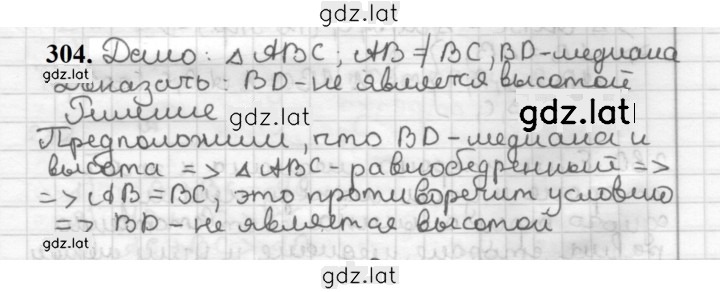 gdz.lat
304. Дано: △ ABC; AB ≠ BC, BD - медиана
gdz.lat
Доказать: BD - не является высотой
Решение gdz.lat gdz.lat
Предположим, что BD - медиана и
высота => △ ABC - равнобедренный =>
=> AB = BC, это противоречит условию
=> BD - не является высотой
gdz.lat
gdz.lat